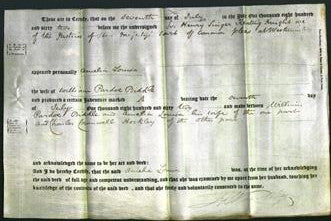 These are to Certify, that on the seventh day of July in the year one thousand eight hundred
and sixty two before us the undersigned Sir Henry Singer Keating Knight one
of the Justices of Her Majesty's Court of Common Pleas at Westminster
appeared personally Amelia Louisa
the wife of William Pardoe Priddle
and produced a certain Indenture marked A bearing date the seventh day
of July One thousand eight hundred and sixty two and made between William
Pardoe Priddle and Amelia Louisa his wife of the one part
and Cromwell of the other part
and acknowledged the same to be her act and deed:
And I do hereby Certify, that the said Amelia Louisa was, at the time of her acknowledging
the said deed of full age and competent understanding, and that she was examined by me apart from her husband, touching
her knowledge of the contents of the said deed, and that she freely and voluntarily consented to the same.